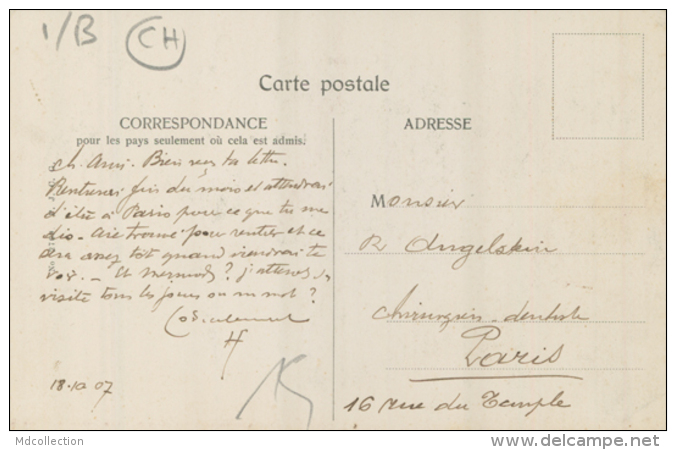 1/B CH
Carte postale
CORRESPONDANCE
pour les pays seulement où cela est admis.
ch. Ami. Bien reçu ta lettre.
Rentrerai fin du mois et attendrai
d'être à Paris pour ce que tu me
dis - trouvé pour rentrer et ce
sera assez tôt quand viendrai te
voir. - Et ? j'attends
visite tous les jours ou un mot ?
Cordialement
H
18-10 07
ADRESSE
Monsieur
R Angelskin
Chirurgien-dentiste
Paris
16 rue du Temple
Mdcollection
www.delcampe.net